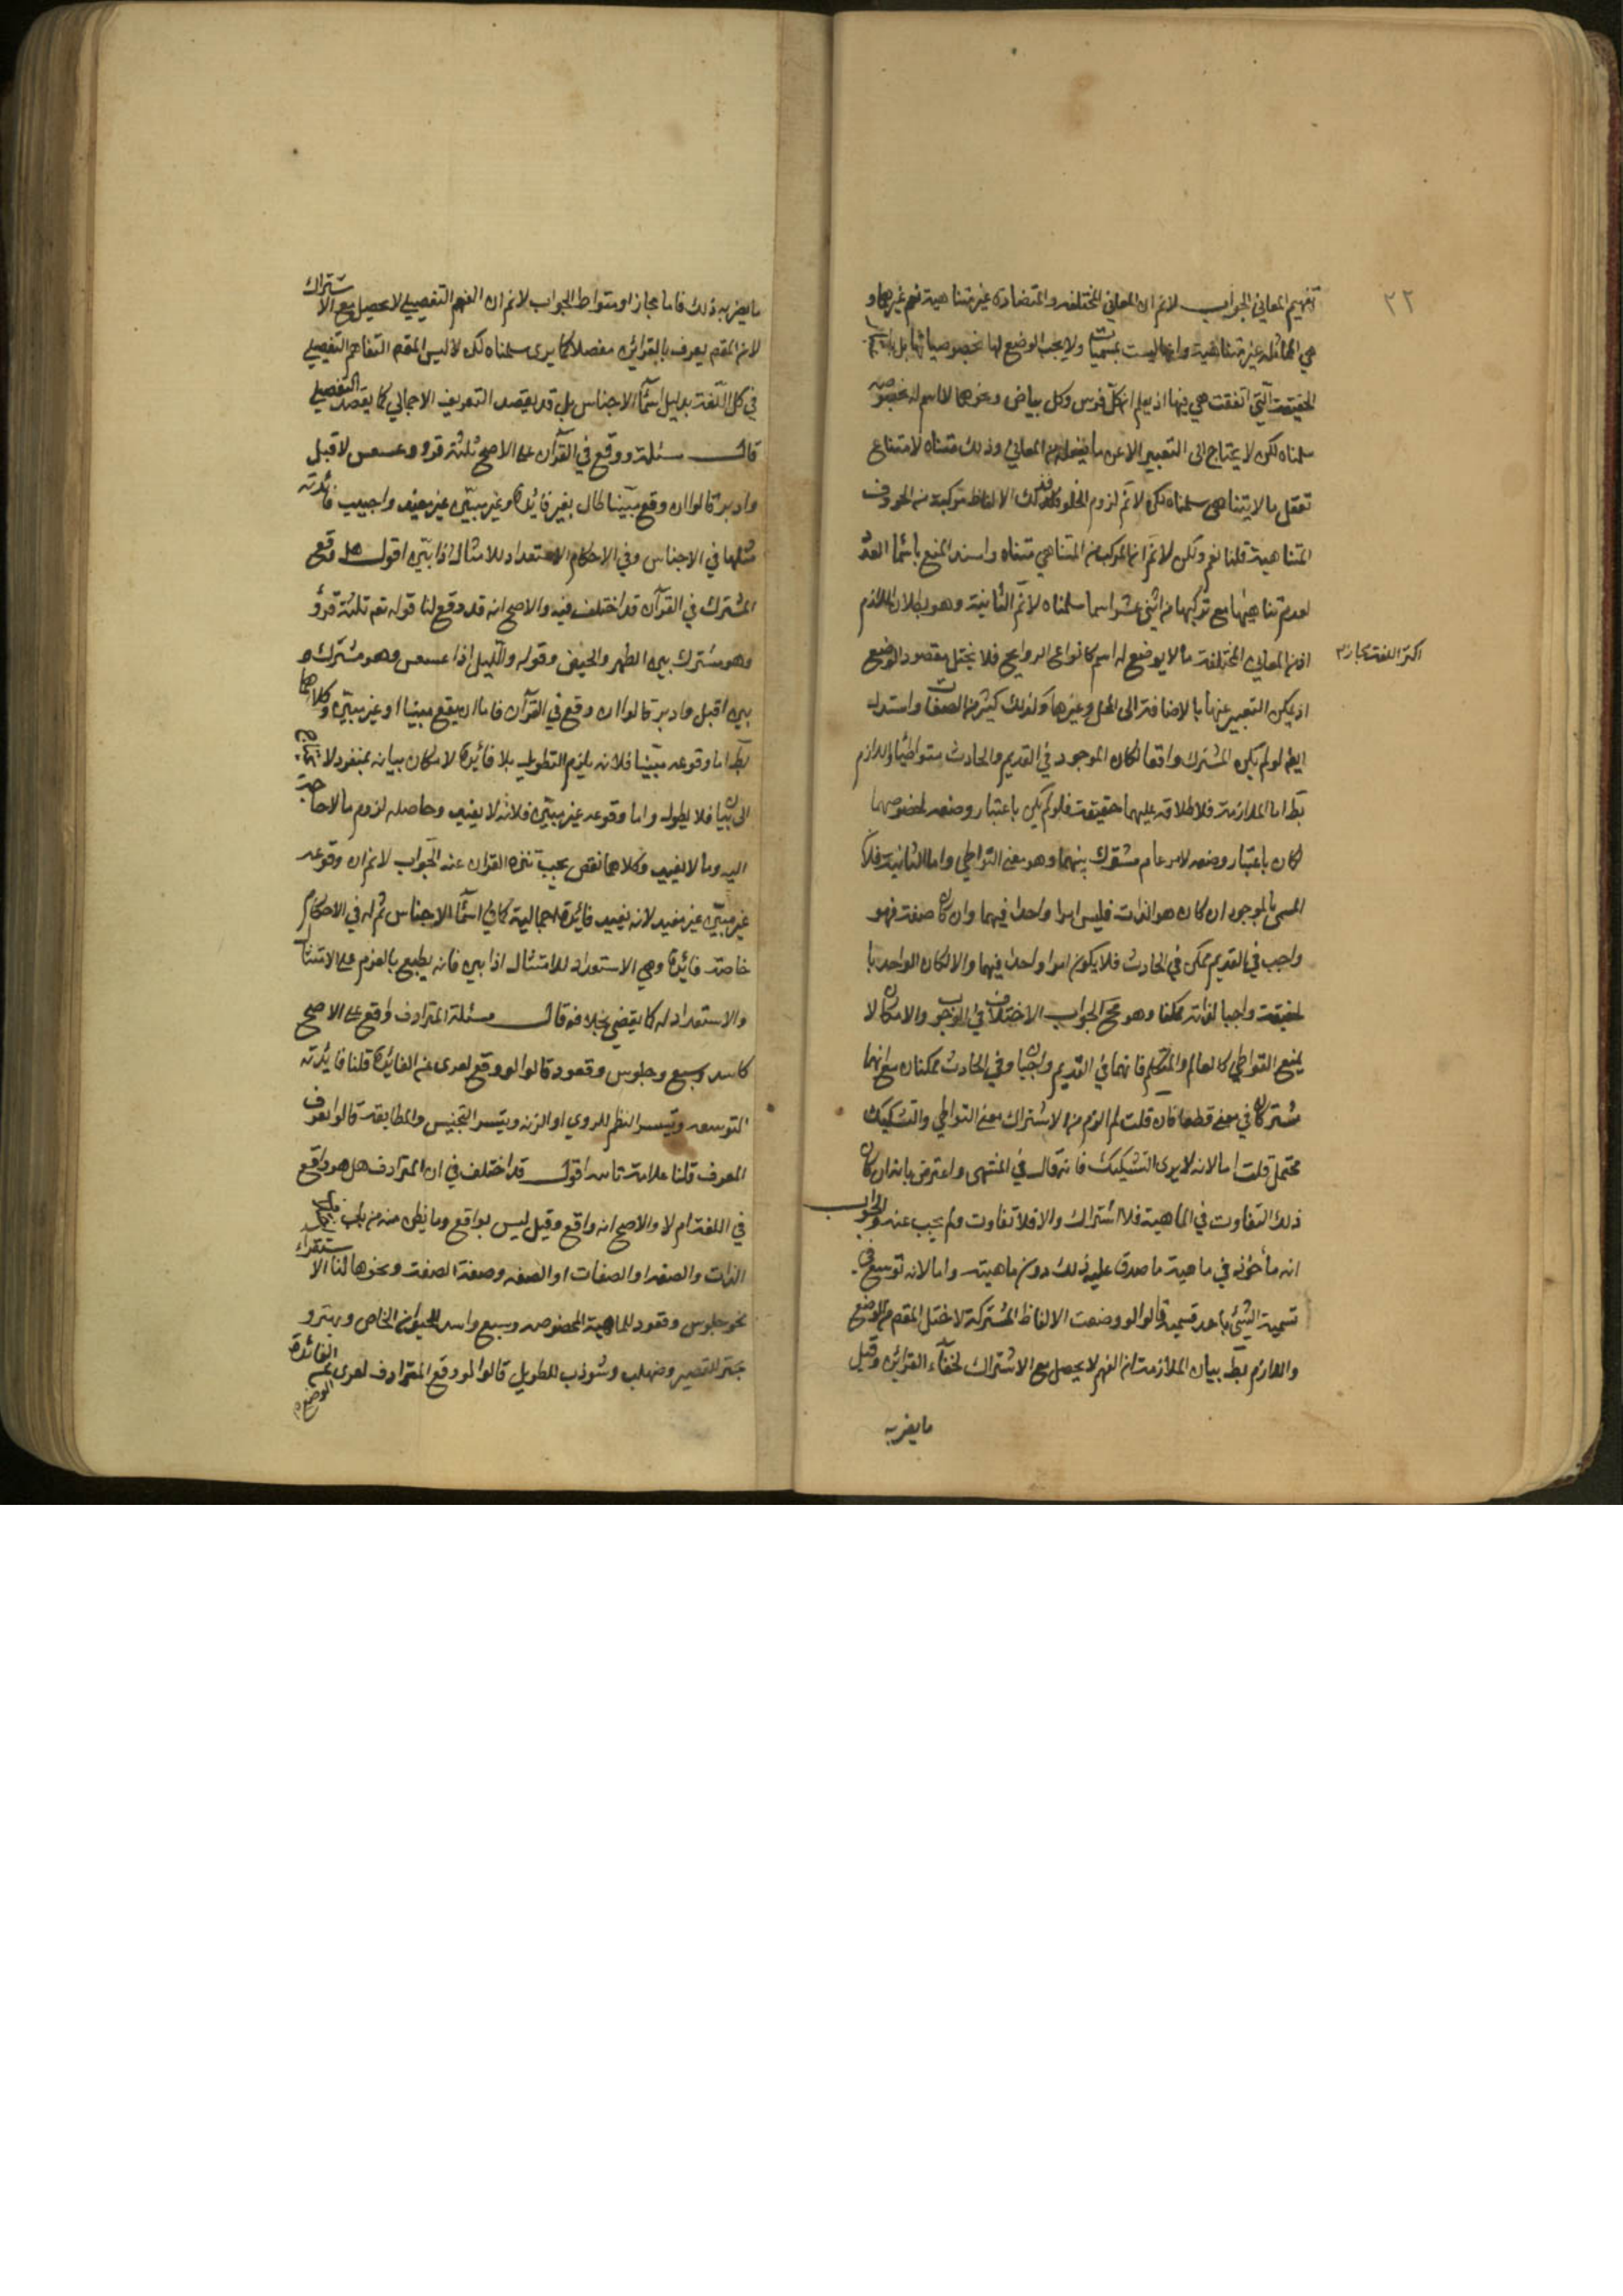 ٣٢
تفهيم المعاني الجواب لا نم ان المعاني المختلفة والمتضادة غير متناهية نعم غيرهما و
هي المماثلة غير متناهية وانها ليست بمسميات ولا يجب الوضع لها بخصوصياتها بل
الحقيقة التي اتفقت هي فيها اذ يعلم ان كل فرس وكل بياض ونحوهما لا اسم له بخصوصه
سلمناه لكن لا يحتاج الى التعبير الا عن ما من المعاني وذلك متناه لامتناع
تعقل ما لا يتناهى سلمناه لكن لا نم لزوم الخلو قولك الالفاظ مركبة من الحروف
المتناهية قلنا نعم ولكن لا نم ان المركب من المتناهي متناه واسند المنع باسماء العدد
لعدم تناهيها مع تركبها من اثنى عشر اسما سلمناه لا نم الثانية وهو بطلان اللازم
اذ من المعاني المختلفة ما لا يوضع له اسم كانواع الروايح فلا يختل مقصود الوضع
اكثر اللغة مجاز
اذ يمكن التعبير عنها بالاضافة الى المحل وغيرها وكذلك كثير من الصفات واستدل
ايضا لو لم يكن المشترك واقعا لكان الموجود في القديم والحادث متواطئا واللازم
بط اما الملازمة فلاطلاقه عليهما حقيقة فلو لم يكن باعتبار وضعه لخصوصهما
لكان باعتبار وضعه لامر عام مشترك بينهما وهو معنى التواطي واما الثانية فلان
المسمى بالموجود ان كان هو الذات فليس امرا واحدا فيهما وان كان صفة فهو
واجب في القديم ممكن في الحادث فلا يكون امرا واحدا فيهما والا لكان الواحد با
لحقيقة واجبا لذاته ممكنا وهو مح الجواب الاختلاف في الوجوب والامكان لا
يمنع التواطي كالعالم والمتكلم فانهما في القديم واجبان وفي الحادث ممكنان مع انهما
مشتركان في معنى قطعا فان قلت لم الزم من الاشتراك معنى التواطي والتشكيك
محتمل قلت اما لانه لا يرى التشكيك فانه قال في المنتهى واعترض بانه ان كان
ذلك التفاوت في الماهية فلا اشتراك والا فلا تفاوت ولم يجب عنه والجواب
انه مأخوذ في ماهية ما صدق عليه ذلك دون ماهيته واما لانه توسع في
تسمية الشئ باحد قسميه قالوا لو وضعت الالفاظ المشتركة لاختل المقصود من الوضع
واللازم بط بيان الملازمة ان الفهم لا يحصل مع الاشتراك لخفاء القرائن وقيل
ما يضر به
ما يضر به ذلك فاما مجاز او متواط الجواب لا نم ان الفهم التفصيلي لا يحصل مع الاشتراك
لان المقصود يعرف بالقرائن مفصلا كما يرى سلمناه لكن لا ليس المقصود التفاهم التفصيلي
في كل اللغة بدليل اسماء الاجناس بل قد يقصد التعريف الاجمالي كما يقصد التفصيلي
قال مسئلة ووقع في القرآن على الاصح ثلثة قروء وعسعس لاقبل
وادبر قالوا ان وقع مبينا طال بغير فائدة وغير مبين غير مفيد واجيب فائدته
مثلها في الاجناس وفي الاحكام الاستعداد للامتثال اذا بين اقول هل وقع
المشترك في القرآن قد اختلف فيه والاصح انه قد وقع لنا قوله تعالى ثلثة قروء
وهو مشترك بين الطهر والحيض وقوله والليل اذا عسعس وهو مشترك
بين اقبل وادبر قالوا ان وقع في القرآن فاما ان يقع مبينا او غير مبين وكلاهما
بط اما وقوعه مبينا فلانه يلزم التطويل بلا فائدة لامكان بيانه بمنفرد لا يحتاج
الى بيان فلا يطول واما وقوعه غير مبين فلانه لا يفيد وحاصله لزوم ما لا حاجة
اليه وما لا يفيد وكلاهما نقص يجب تنزه القران عنه الجواب لا نم ان وقوعه
غير مبين غير مفيد لانه يفيد فائدة اجمالية كما في اسماء الاجناس ثم له في الاحكام
خاصة فائدة وهي الاستعداد للامتثال اذا بين فانه يطيع بالعزم على الامتثال
والاستعداد له كما يعصي بخلافه قال مسئلة المترادف واقع على الاصح
كاسد وسبع وجلوس وقعود قالوا لو وقع لعرى عن الفائدة قلنا فائدته
التوسعة وتيسر النظم للروي او الزنة وتيسر التجنيس والمطابقة قالوا تعرف
المعرف قلنا علامة ثانية اقول قد اختلف في ان المترادف هل هو واقع
في اللغة ام لا والاصح انه واقع وقيل ليس بواقع وما يظن منه من باب
الذات والصفة او الصفات او الصفة وصفة الصفة ونحوها لنا الاستقراء
نحو جلوس وقعود للماهية المخصوصة وسبع واسد للحيوان الخاص وبهتر و
بحتر للقصير وصهلب وشوذب للطويل قالوا لو وقع المترادف لعرى عن الفائدة
الوضع